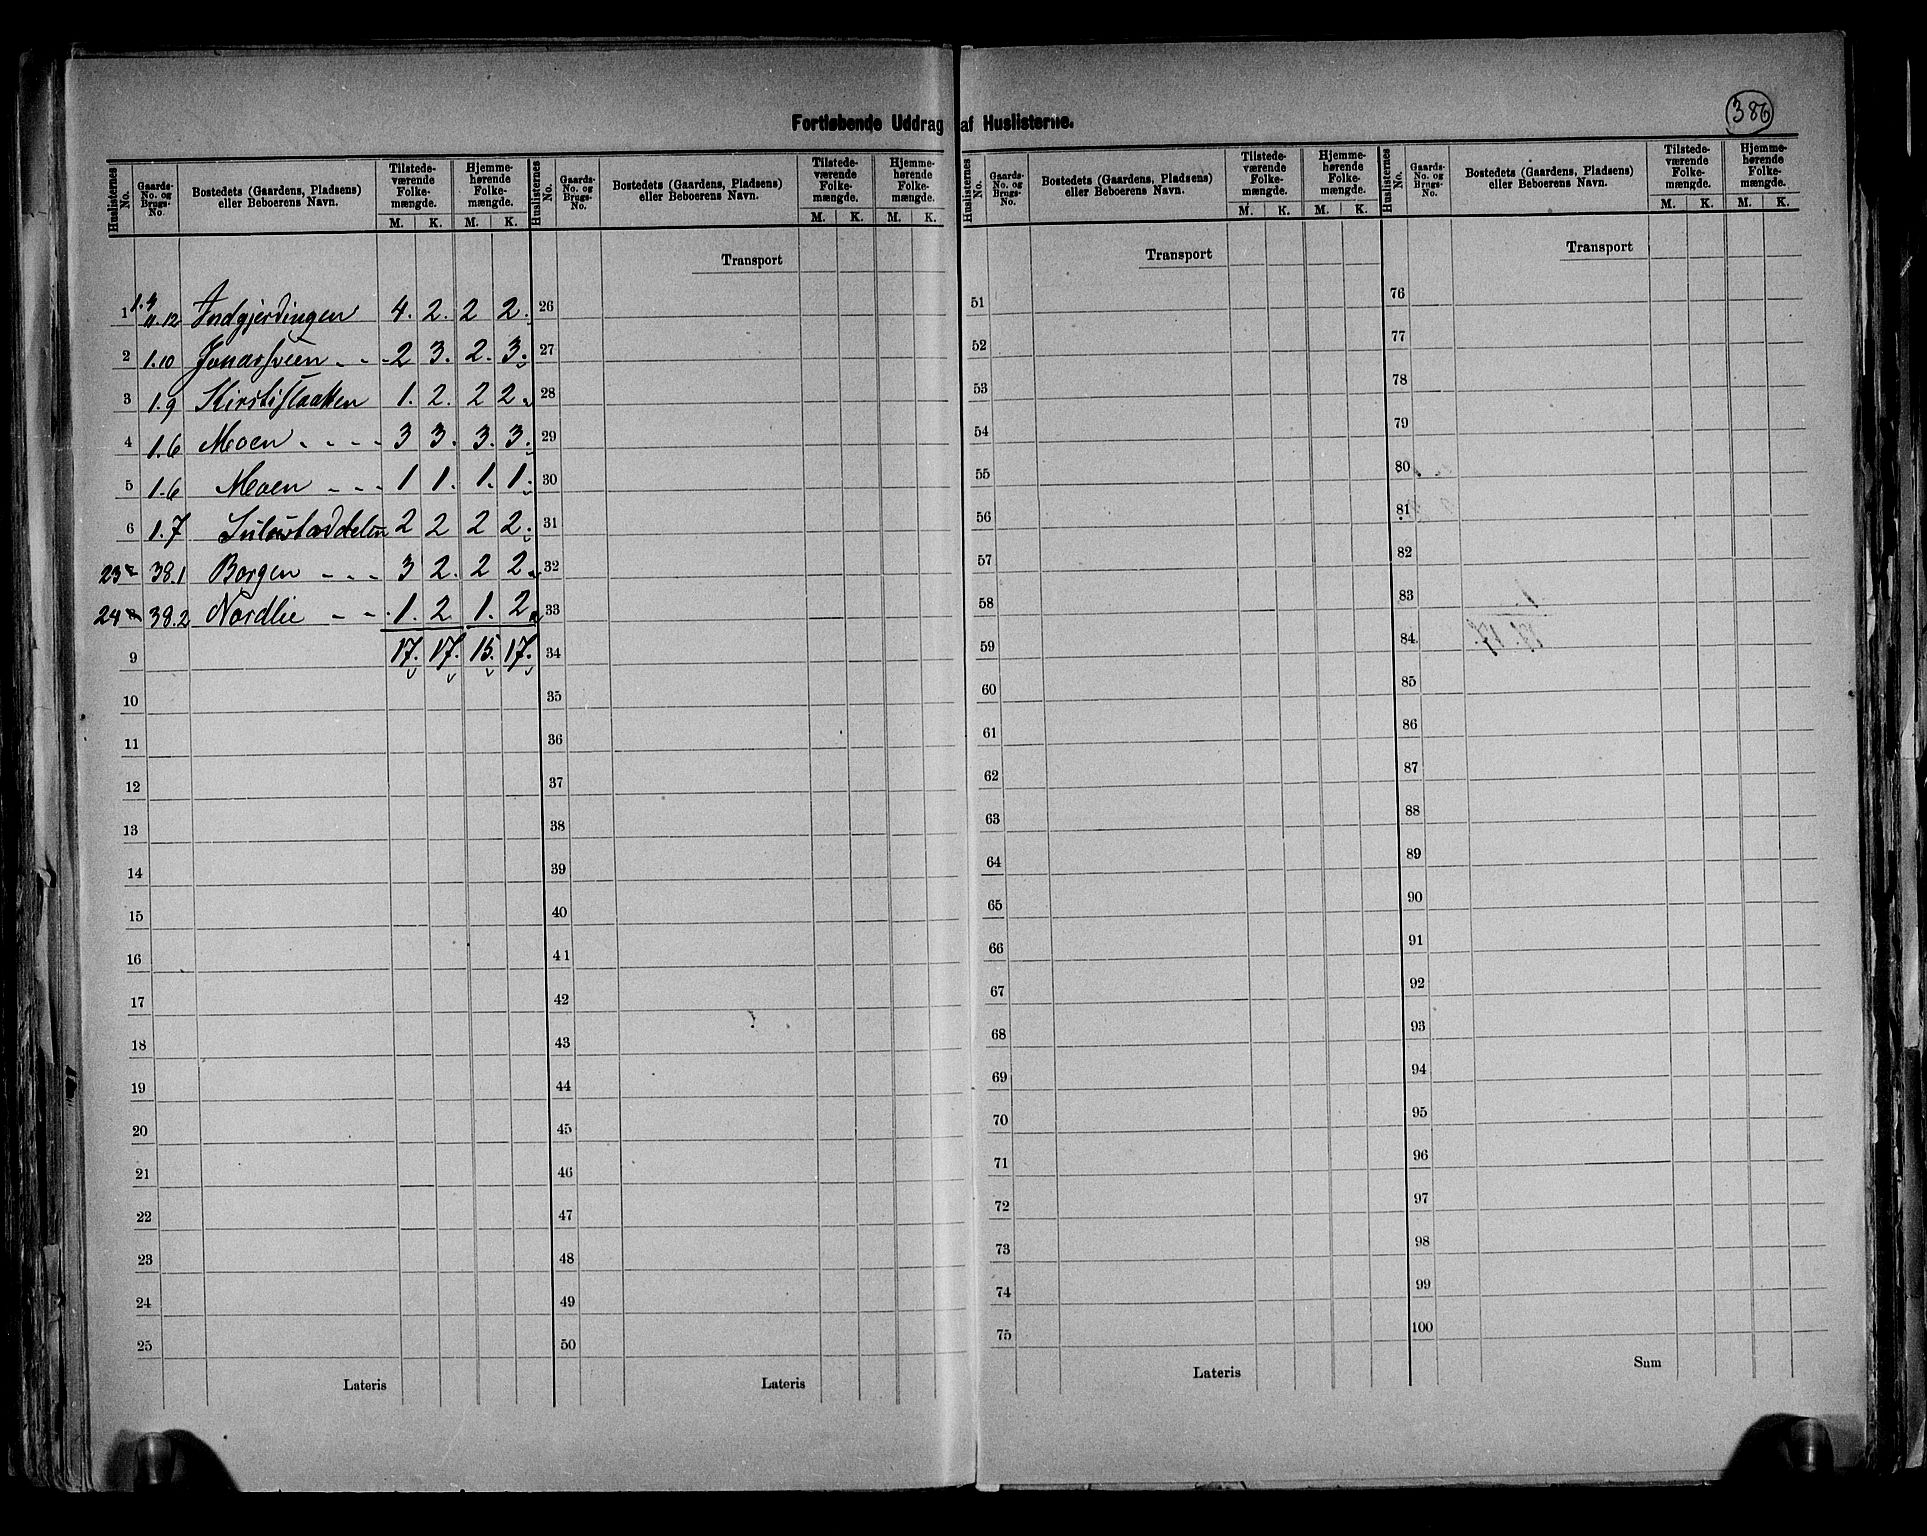 386
Fortløbende Uddrag af Huslisterne.
Huslisternes No. Gaards-No. og Brugs-No. Bostedets (Gaardens, Pladsens) eller Beboerens Navn. Tilstede-værende Folke-mængde. M. K. Hjemme-hørende Folke-mængde. M. K.
1 1. 11.12 Indgjerdingen 4. 2. 2 2.
2 1.10 Jonashveen 2 3. 2. 3.
3 1.9 Kirstislaatten 1. 2. 2 2.
4 1.6 Moen 3 3. 3. 3.
5 1.6 Moen 1 1. 1. 1.
6 1.7 2 2 2 2.
23 38.1 Borgen 3 2. 2 2.
24 38.2 Nordlie 1. 2 1. 2
9 17. 17. 15. 17.
10
11
12
13
14
15
16
17
18
19
20
21
22
23
24
25
Lateris
Huslisternes No. Gaards-No. og Brugs-No. Bostedets (Gaardens, Pladsens) eller Beboerens Navn. Tilstede-værende Folke-mængde. M. K. Hjemme-hørende Folke-mængde. M. K.
Transport
26
27
28
29
30
31
32
33
34
35
36
37
38
39
40
41
42
43
44
45
46
47
48
49
50
Lateris
Huslisternes No. Gaards-No. og Brugs-No. Bostedets (Gaardens, Pladsens) eller Beboerens Navn. Tilstede-værende Folke-mængde. M. K. Hjemme-hørende Folke-mængde. M. K.
Transport
51
52
53
54
55
56
57
58
59
60
61
62
63
64
65
66
67
68
69
70
71
72
73
74
75
Lateris
Huslisternes No. Gaards-No. og Brugs-No. Bostedets (Gaardens, Pladsens) eller Beboerens Navn. Tilstede-værende Folke-mængde. M. K. Hjemme-hørende Folke-mængde. M. K.
Transport
76
77
78
79
80
81
82
83
84
85
86
87
88
89
90
91
92
93
94
95
96
97
98
99
100
Sum